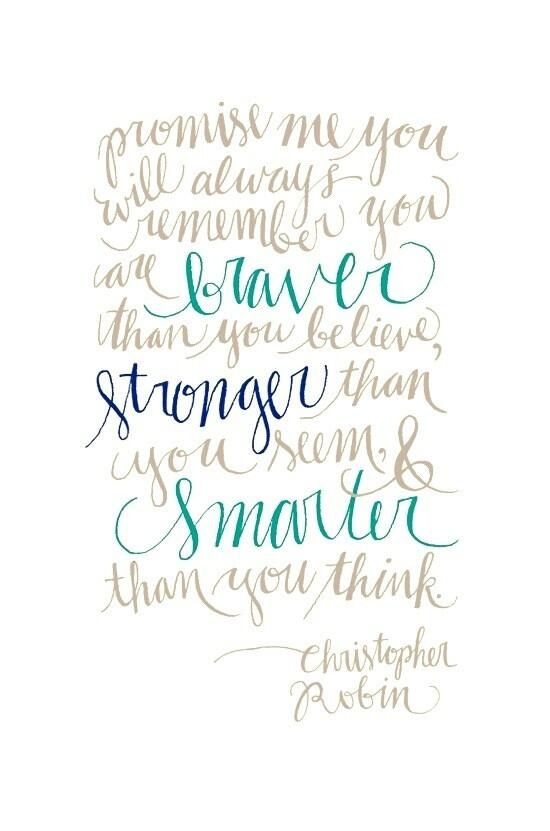 promise me you
will always
remember you
are braver
than you believe,
stronger than
you seem, &
smarter
than you think.
Christopher
Robin